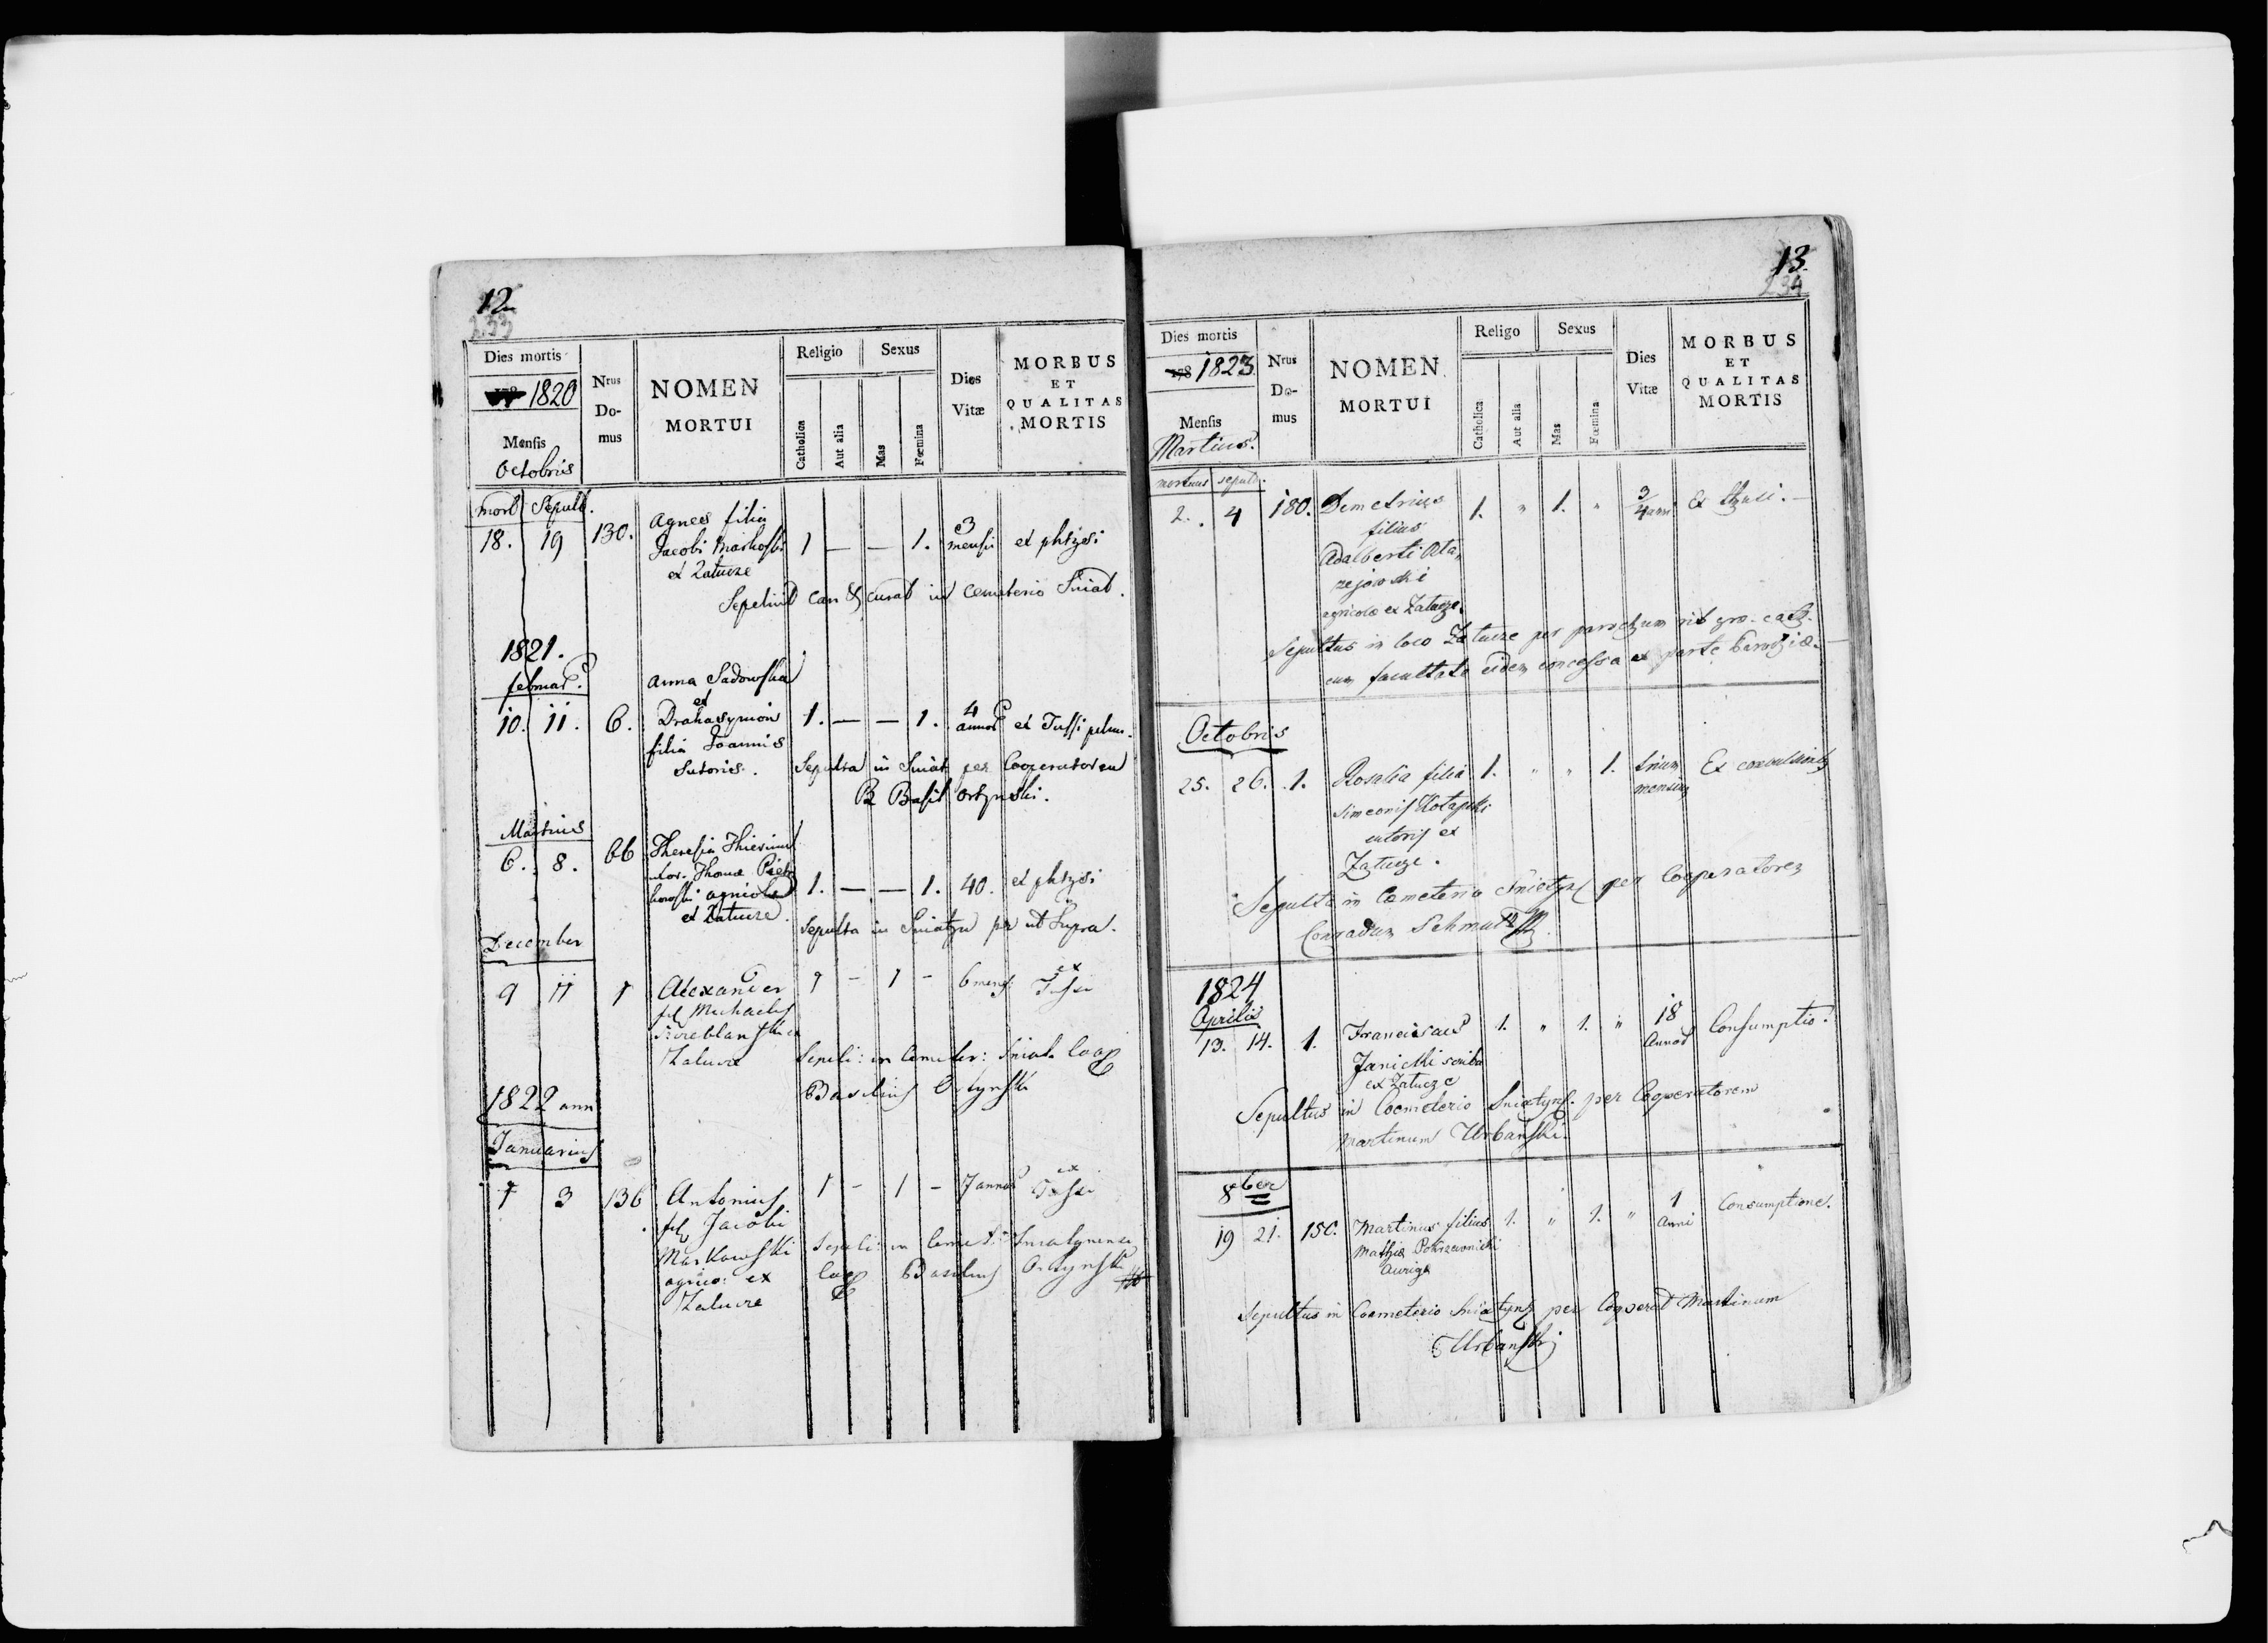 12.
233
Dies mortis
1820
Mensis
Octobris
Nrus
Do-
mus
NOMEN
MORTUI
Religio
Catholica
Aut alia
Sexus
Mas
Fœmina
Dies
Vitæ
MORBUS
ET
QUALITAS
MORTIS
mort Sepult.
18. 19 130. Agnes filia
Jacobi Markofski 1 — — 1. 3 mensi ex phtysi
ex Zalucze
Sepelivit curat in Cemeterio Sniat.
1821.
februar.
Anna Sadowska
et
10. 11. 6. 1. — — 1. 4 annos ex Tussi
filia Joannis
Sutoris.
Sepulta in Sniat per Cooperatorem
Basil Ortynski.
Martius
6. 8. 66 Theresia
Thoma
agricola 1. — — 1. 40. ex phtysi
ex Zalucze.
Sepulta in Sniatyn per ut Supra.
December
9 11 1 Alexander 1 – 1 – 6 mens: ex Tussi
fil Michaelis
Zalucze
Sepeli: in Cemeter: Sniat. Coop
Basilius Ortynski
1822 ann
Januarius
1 3 136 Antonius 1 – 1 – 7 annos ex Tussi
fil Jacobi
Markowski
agrico: ex
Zalucze
Sepeli: in Cemet: Sniatynensi
Coop Basilius Ortynski
13.
234
Dies mortis
178 1823
Mensis
Martius.
Nrus
Do-
mus
NOMEN
MORTUI
Religo
Catholica
Aut alia
Sexus
Mas
Fœmina
Dies
Vitæ
MORBUS
ET
QUALITAS
MORTIS
mortuus sepult.
2. 4 180. Demetrius 1. " 1. " 3/4 anni Ex
filius
Adalberti
agricolæ ex Zalucze.
Sepultus in loco Zalucze per parochum rit. gr. cath.
cum facultate eidem concessa ex parte Parochiæ.
Octobris
25. 26. 1. Rosalia filia 1. " " 1. trium mensium Ex convulsionib
Simeonis
sutoris ex
Zalucze.
Sepulta in Cœmeterio Sniatyn per Cooperatorem
Conradum
1824
Aprilis
13. 14. 1. Franciscus 1. " 1. " 18 Annos Consumptio.
Janicki scriba
ex Zalucze
Sepultus in Coemeterio Sniatyns. per Cooperatorem
Martinum Urbanski.
8ber
19 21. 150. Martinus filius 1. " 1. " 1 Anni Consumptione.
Mathiæ
Auriga
Sepultus in Coemeterio Sniatyns per Cooperat Martinum
Urbanski